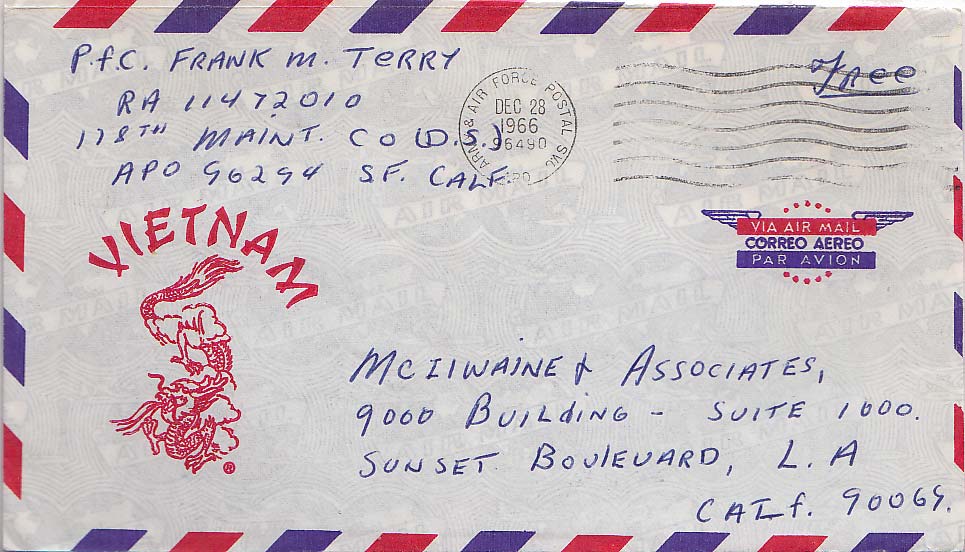 P.f.C. FRANK M. TERRY
RA 11472010
178TH MAINT. CO (D.S.)
APO 96294 S.F. CALF.
ARMY & AIR FORCE POSTAL SVC
DEC 28
1966
96490
APO
Free
VIETNAM
®
VIA AIR MAIL
CORREO AEREO
PAR AVION
MCIlWAINE & ASSOCIATES,
9000 BUILDING - SUITE 1000.
SUNSET BOULEVARD, L.A
CALf. 90069.
AIR MAIL